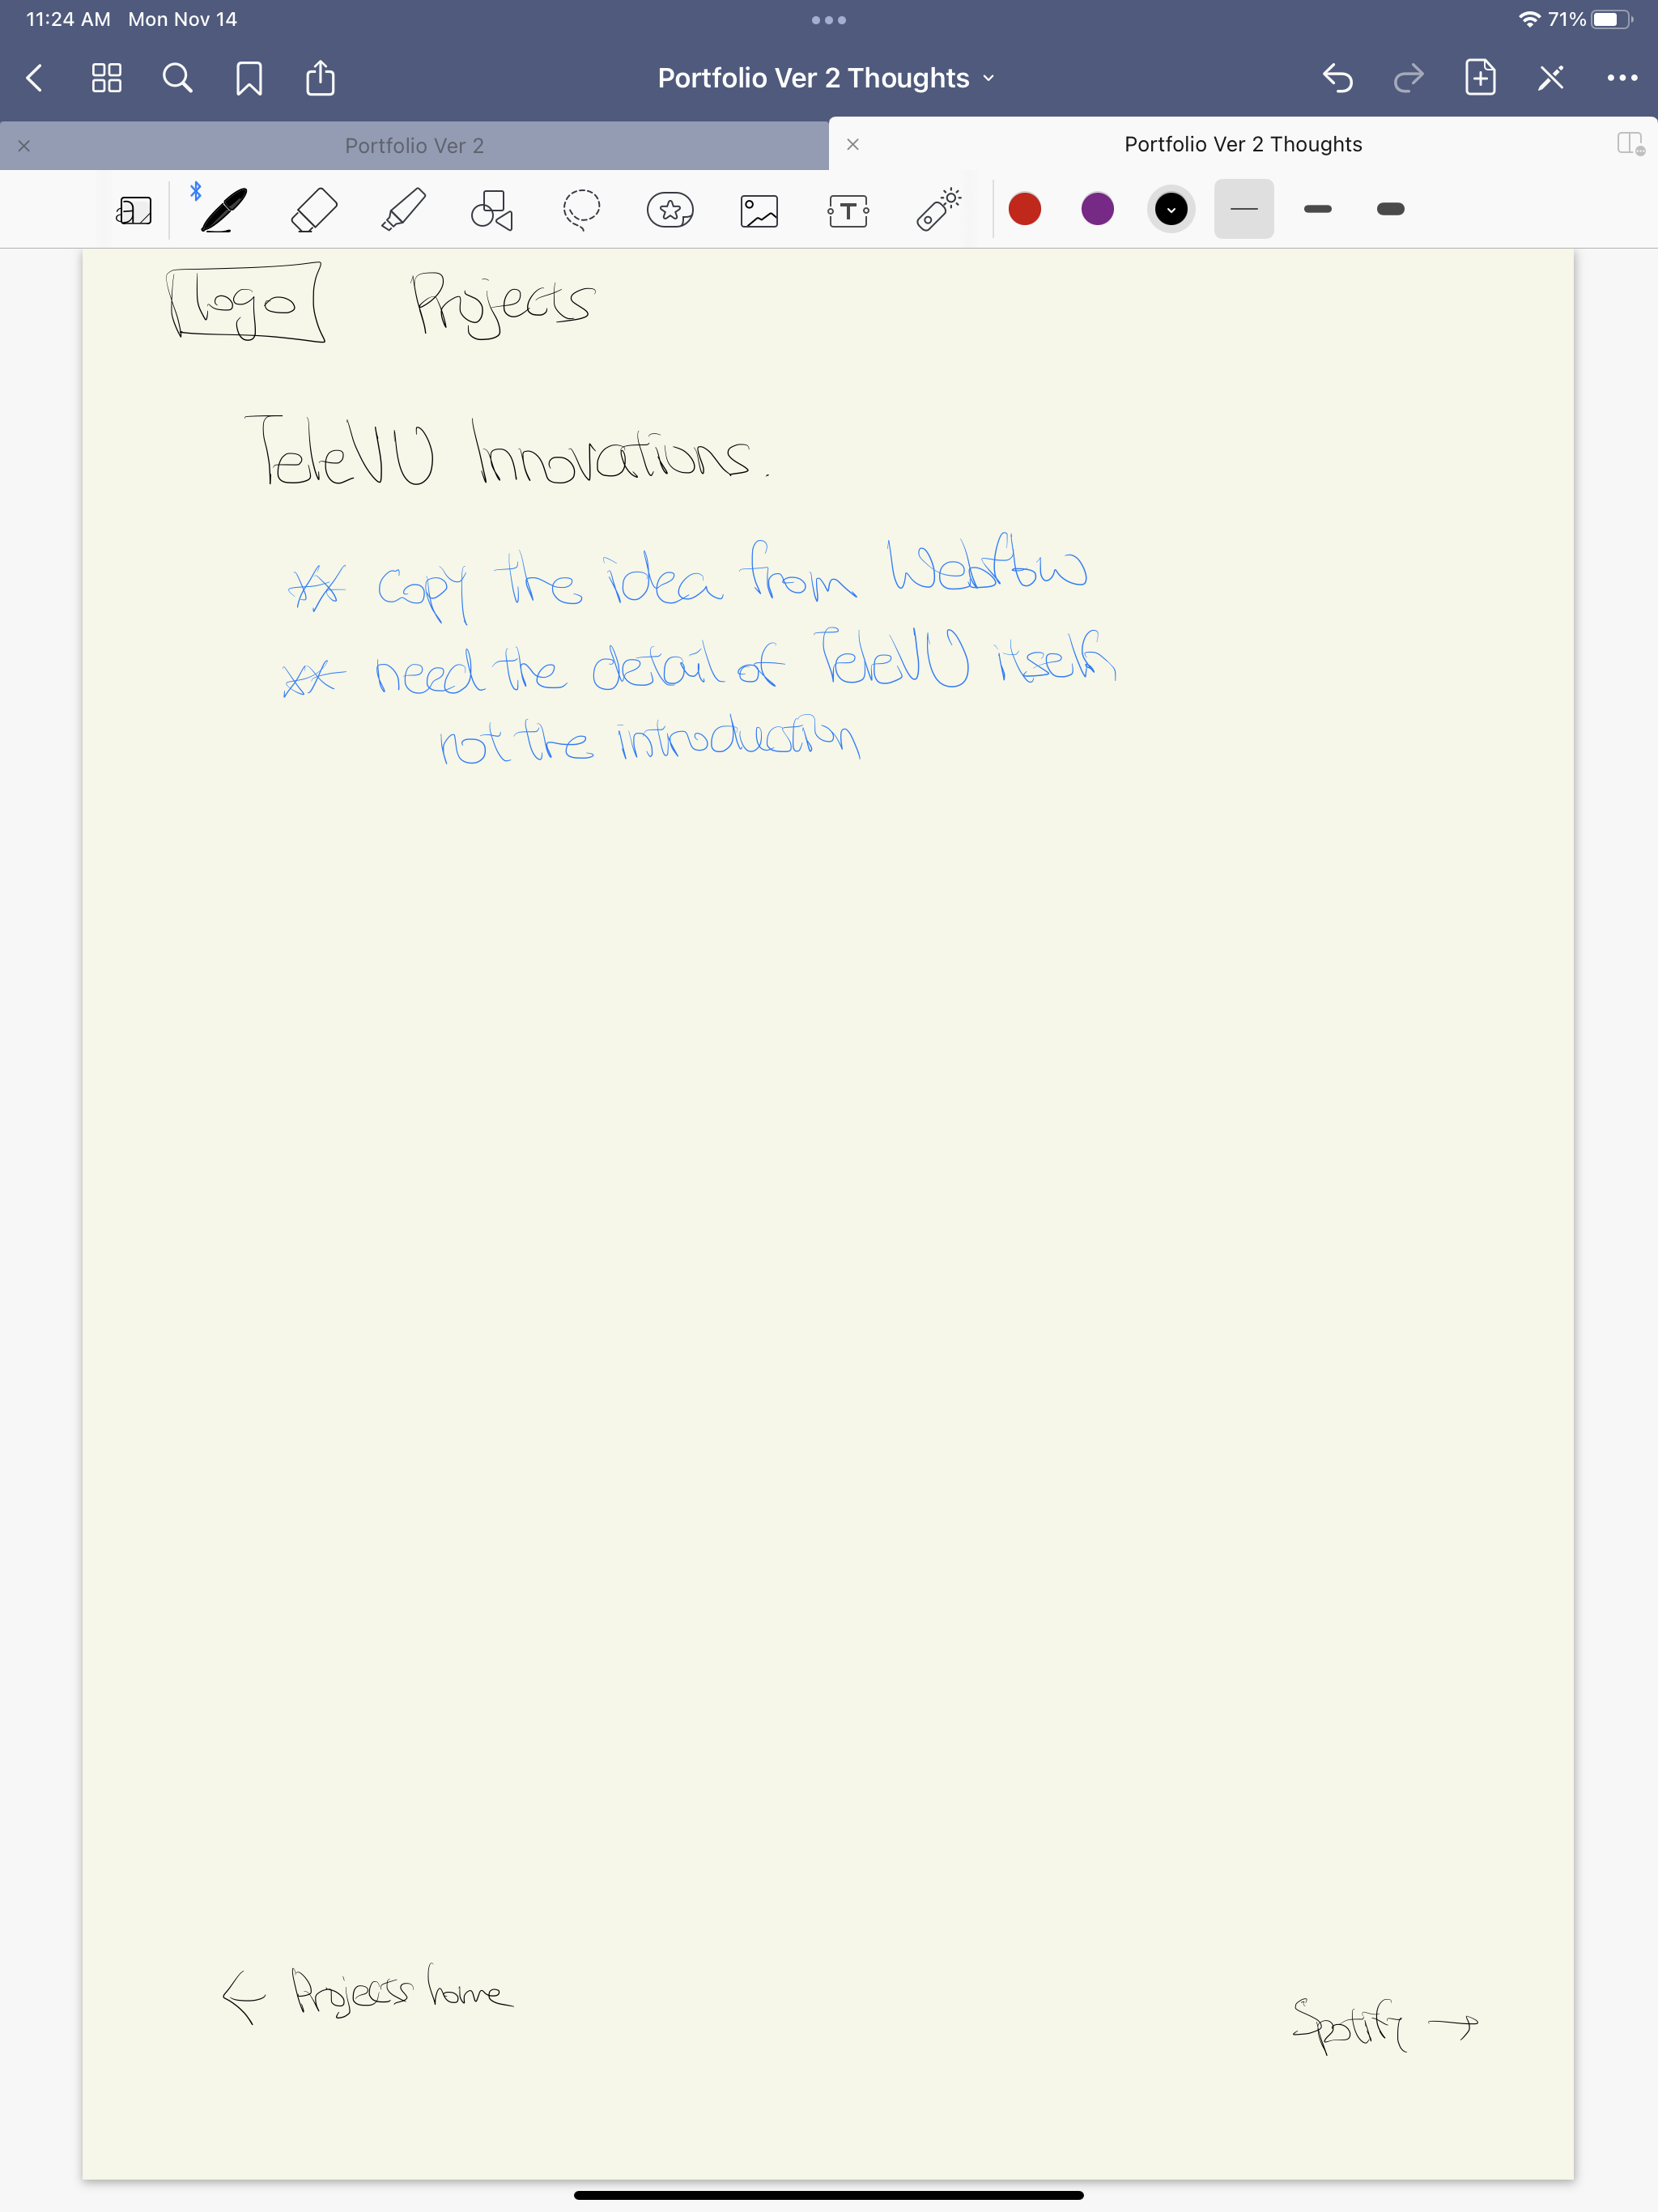 11:24 AM Mon Nov 14
71%
Portfolio Ver 2 Thoughts
Portfolio Ver 2
Portfolio Ver 2 Thoughts
logo Projects
TeleVU Innovations.
** copy the idea from Webflow
** need the detail of TeleVU itself
not the introduction
← Projects home
Spotify →